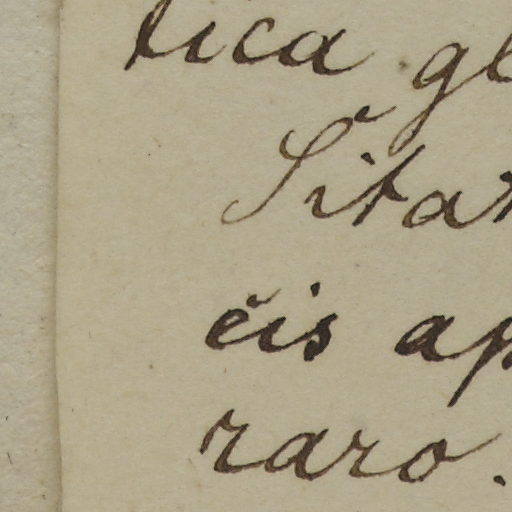 tica gl
Sitat
cis ap
raro.